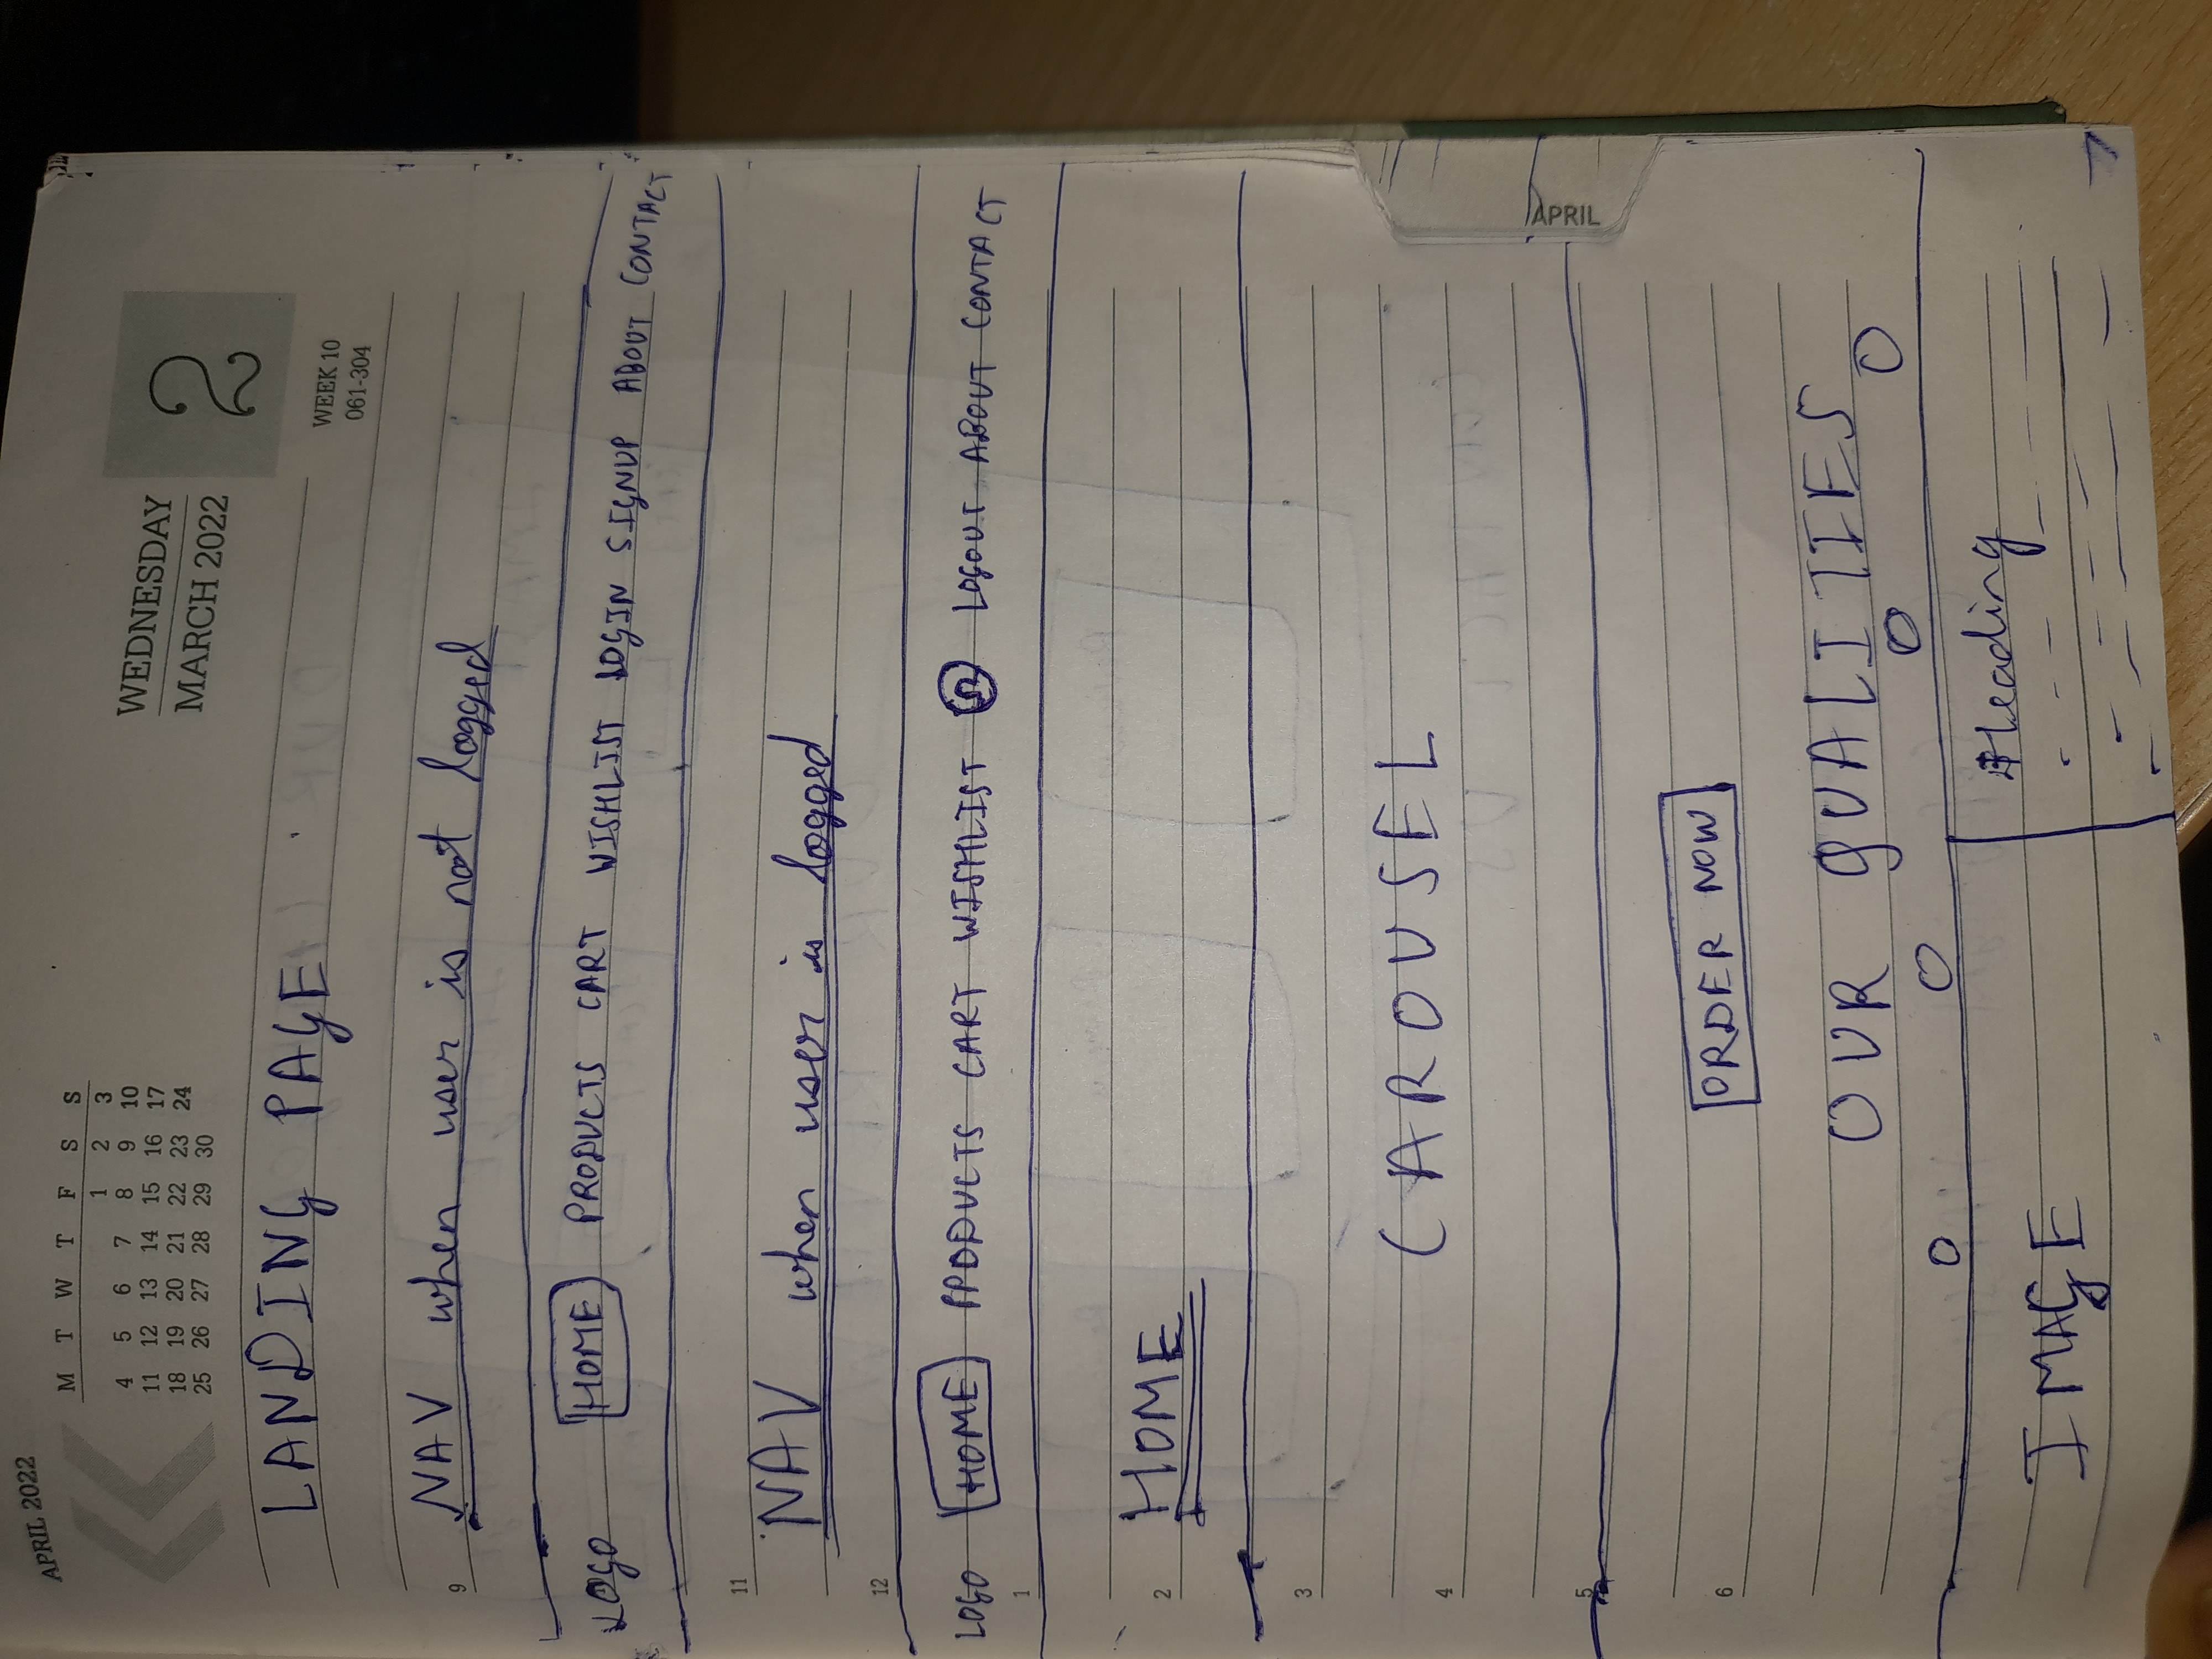 APRIL 2022
M T W T F S S
1 2 3
4 5 6 7 8 9 10
11 12 13 14 15 16 17
18 19 20 21 22 23 24
25 26 27 28 29 30
WEDNESDAY
MARCH 2022
2
WEEK 10
061-304
LANDING PAGE
9
NAV when user is not logged
LOGO HOME PRODUCTS CART WISHLIST LOGIN SIGNUP ABOUT CONTACT
11
NAV when user is logged
12
LOGO HOME PRODUCTS CART WISHLIST LOGOUT ABOUT CONTACT
1
2
HOME
3
CAROUSEL
4
APRIL
5
ORDER NOW
6
OUR QUALITIES
Heading
IMAGE